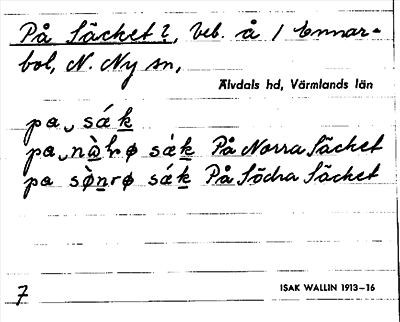 På Säcket 2, beb. å 1 Ennar-
bol, N. Ny sn,
Älvdals hd, Värmlands län
pa sák
pa nὼrø sák På Norra Säcket
pa sònrø sák På Södra Säcket
7 ISAK WALLIN 1913—16